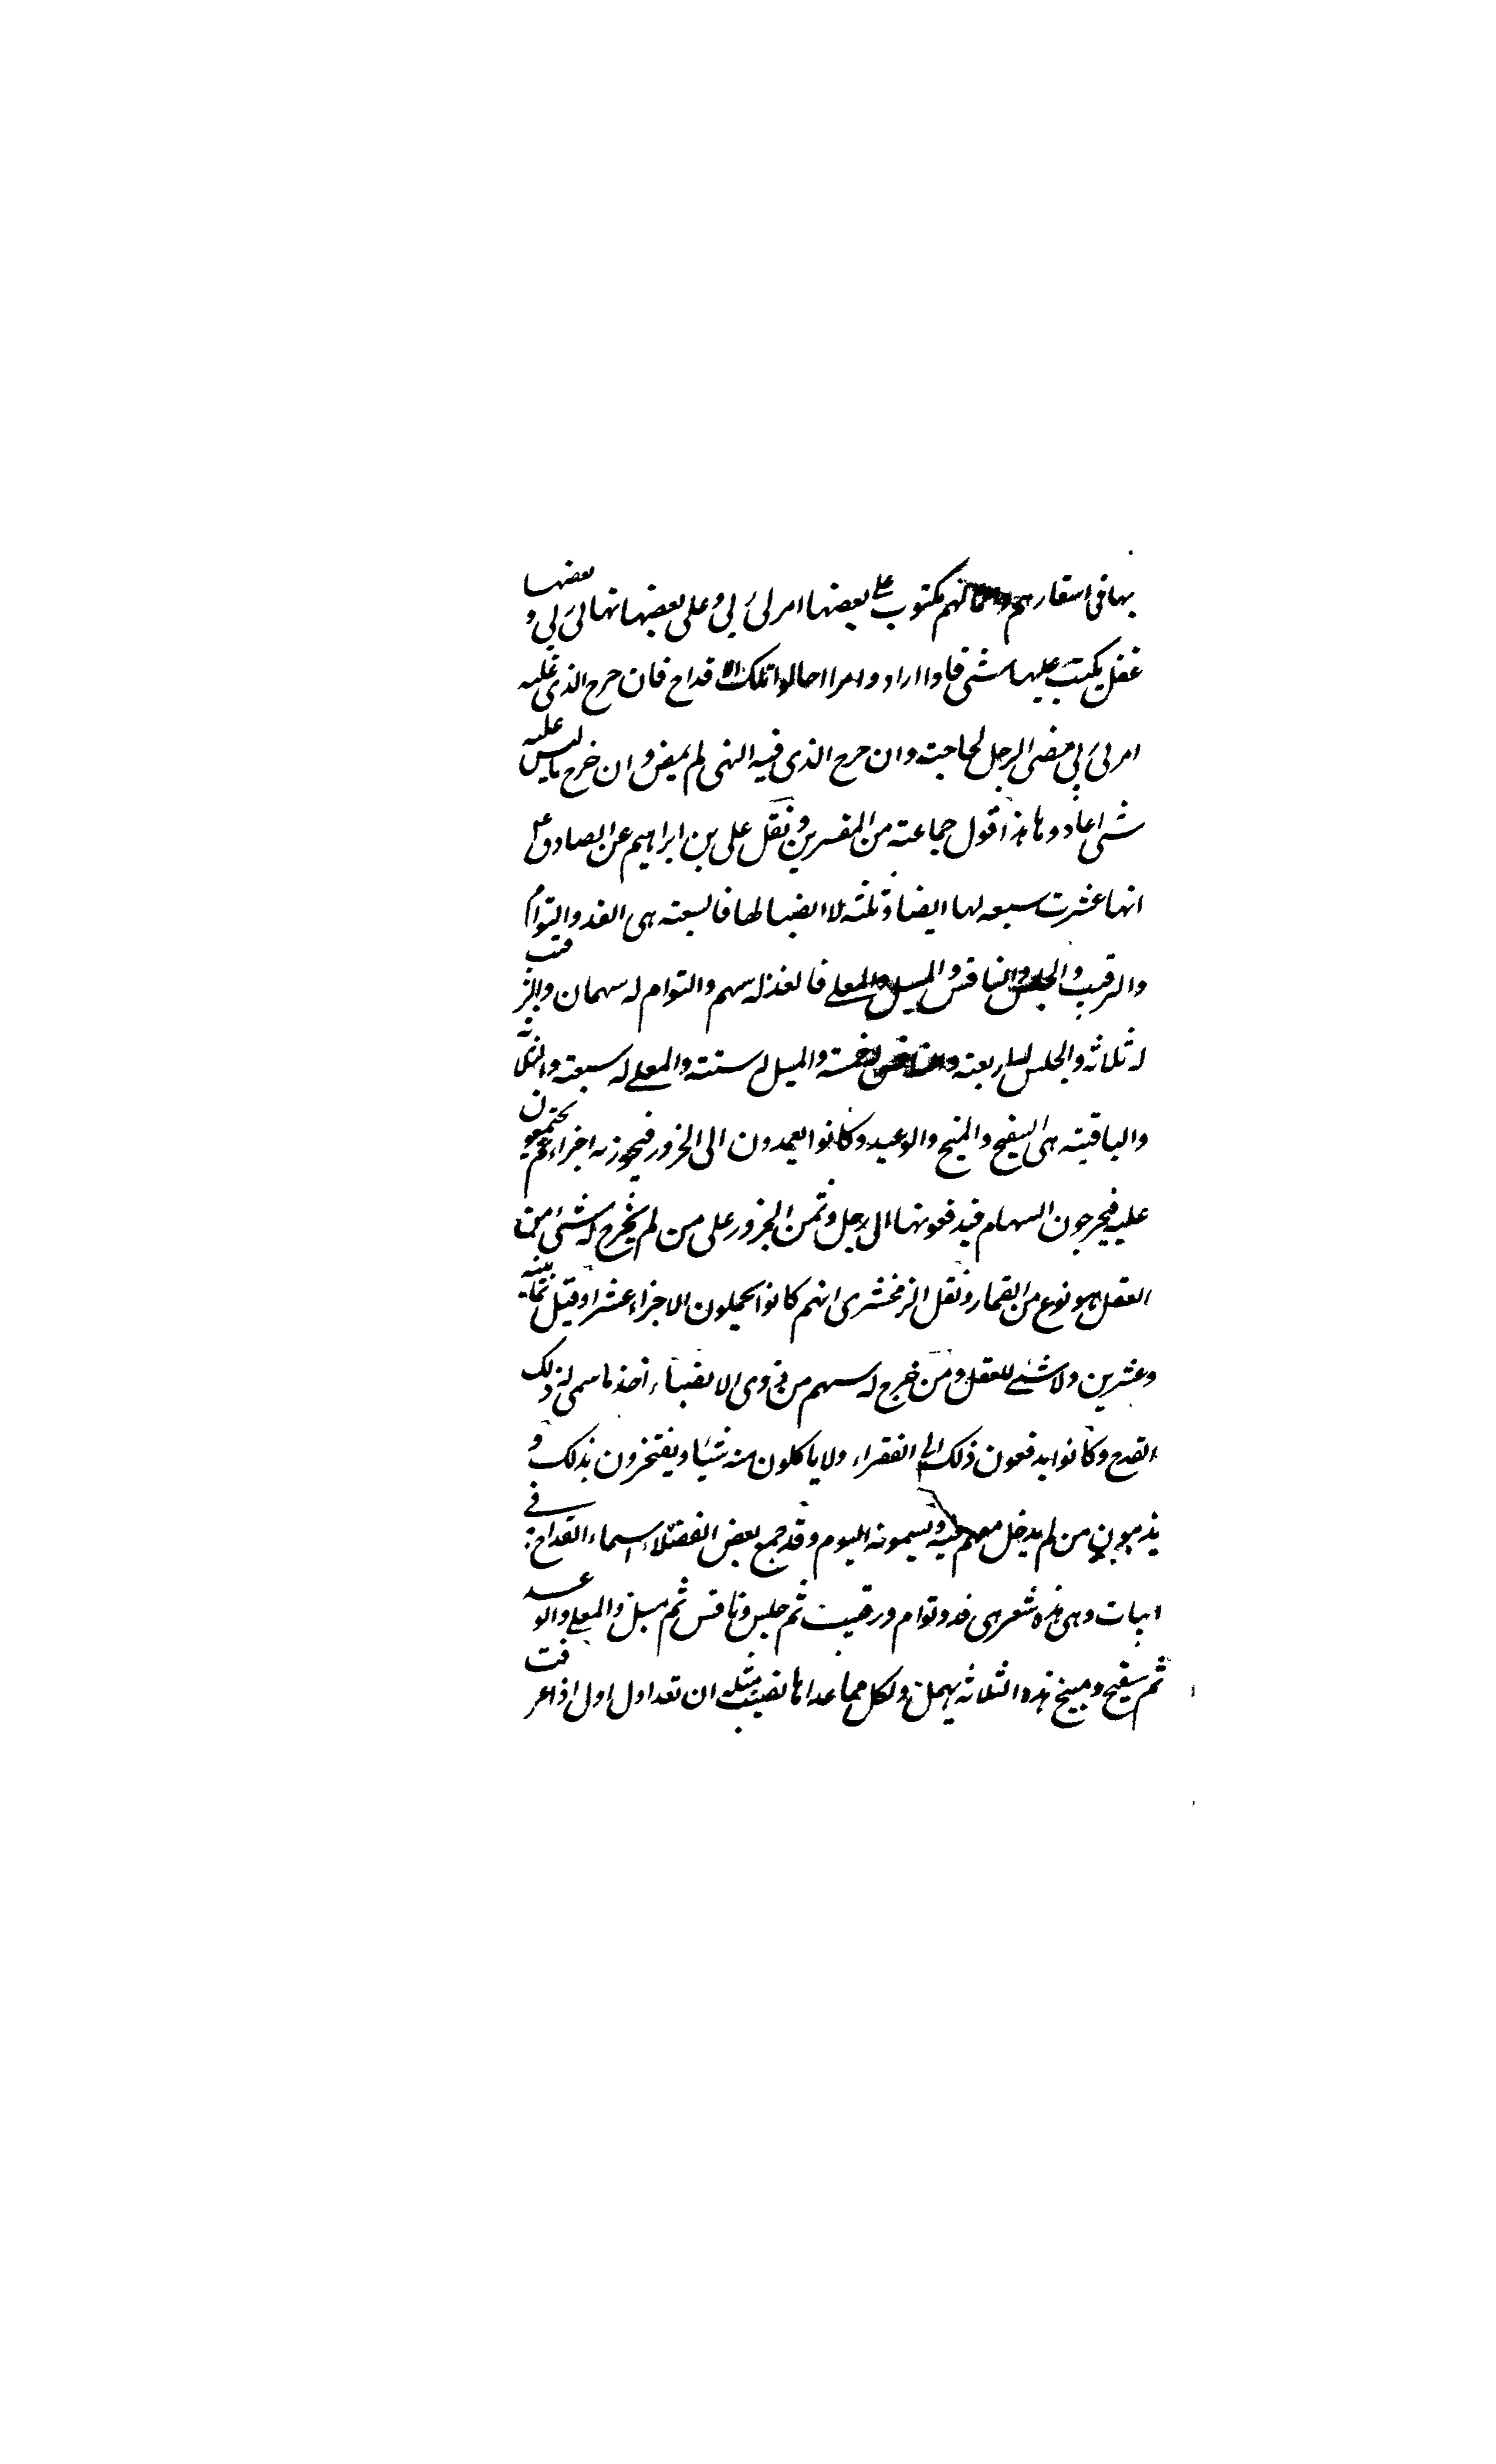 بها فى اسفارهم واعمالهم مكتوب على بعضها امرنى ربى وعلى بعضها نهانى ربى و بعضها
غفل يكتب عليها شى فاذا ارادوا امرا اجالوا تلك الاقداح فان خرج الذى عليه
امرنى ربى مضى الرجل لحاجته وان خرج الذى فيه النهى لم يمض وان خرج ما ليس عليه
شى اعادوها هذا قول جماعة من المفسرين ونقل على بن ابراهيم عن الصادق ع
انها عشرت سبعه لها انصبا وثلثه لا انصبا لها فالسبعة هى الفذ والتوام
والرقيب والحلس والنافس والمسبل والمعلى فالفذ له سهم والتوام له سهمان والرقيب
له ثلاثه والحلس له اربعة والنافس له خمسة والمسبل له ستة والمعلى له سبعة والثلاثه
والباقية هى السفيح والمنيح والوغيد وكانوا يعمدون الى الجزور فيجوزنه اجزاء ثم يجتمعون
عليه فيخرجون السهام فيدفعونها الى رجل وثمن الجزور على من لم يخرج له شئ من
الغفل هو نوع من القمار ونقل الزمخشرى انهم كانوا يجعلون الاجزاء عشرا وقيل ثمانية
وعشرين ولا شئ للغفل ومن خرج له سهم من ذوى الانصباء اخذ ما سمى له ذلك
القدح وكانوا يدفعون ذلك الى الفقراء ولا ياكلون منه شيئا ويفتخرون بذلك و
يذمون من لم يدخل معهم فيه ويسمونه البرم وقد جمع بعض الفضلاء اسماء القداح فى
ابيات وهى هذه شعر هى فذ وتوام ورقيب ثم حلس ونافس ثم مسبل والمعلى والوغد
ثم سفيح ومنيح هذه الثلاثه تهمل ولكل مما عداها نصيب مثله ان تعد اول اول اذا عرفت